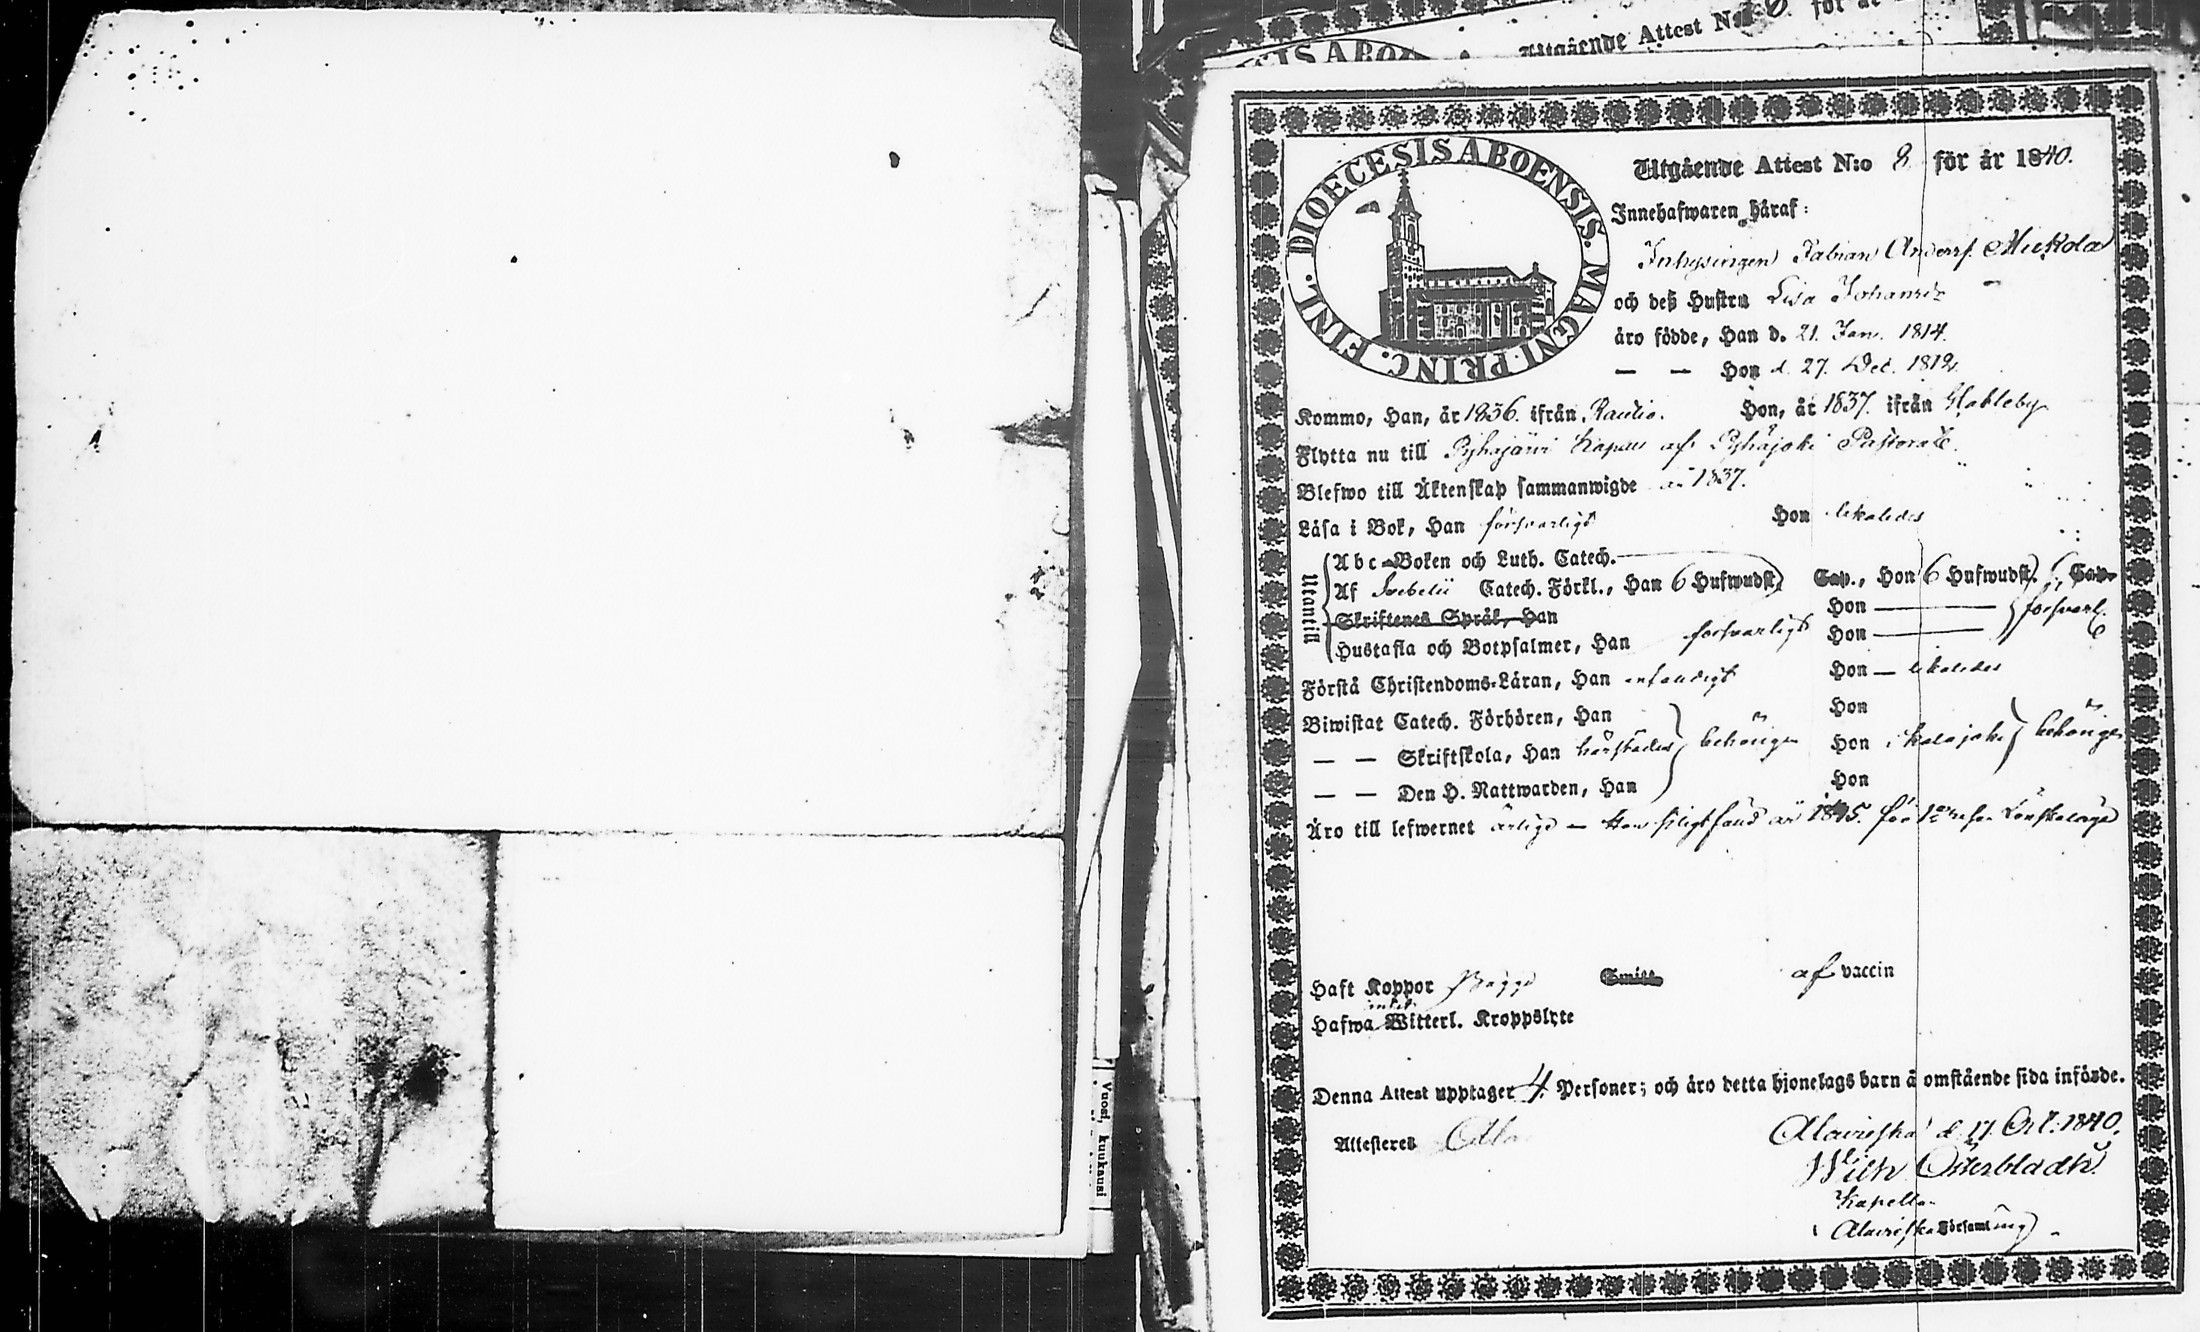 Utgående Attest N:o 6 för år
DIOECESIS ABOENSIS. MAGNI. PRINC. FINL.
Utgående Attest N:o 8 för år 1840.
Innehafwaren håraf:
Inhysingen Fabian Anderss. Muckola
och deß Hustru Lisa Johansd:r
åro födde, Han d. 21. Jan. 1814.
— — Hon d. 27. Dec. 1812.
Kommo, Han, år 1836. ifrån Rautio. Hon, år 1837. ifrån
Flytta nu till Pyhäjärvi Kapell af Pyhäjoki Pastorat.
Blefwo till Äktenskap sammanwigde år 1837.
Låsa i Bok, Han försvarligt Hon likaledes
Utantill
Abc-Boken och Luth. Catech.
Af Svebelii Catech. Förkl., Han 6 Hufwudst. Cap., Hon 6 Hufwudst. Cap.
Skriftenes Språk, Han Hon — försvarl.
Hustafla och Botpsalmer, Han försvarligt Hon —
Förstå Christendoms-Låran, Han Hon — likaledes
Biwistat Catech. Förhören, Han Hon
— — Skriftskola, Han härstädes behörigen Hon i Kalajoki behörigen
— — Den H. Nattwarden, Han Hon
Äro till lefwernet ärlige —
Haft Koppor Bägge af vaccin
Hafwa intet Witterl. Kroppslyte
Denna Attest upptager 4. Personer; och åro detta hjonelags barn å omstående sida införde.
Attesteres Ala
Alavieska d. 17. Oct. 1840.
Wilh. Österbladh
Kapellan
i Alavieska Församling
Vuosi, kuukausi